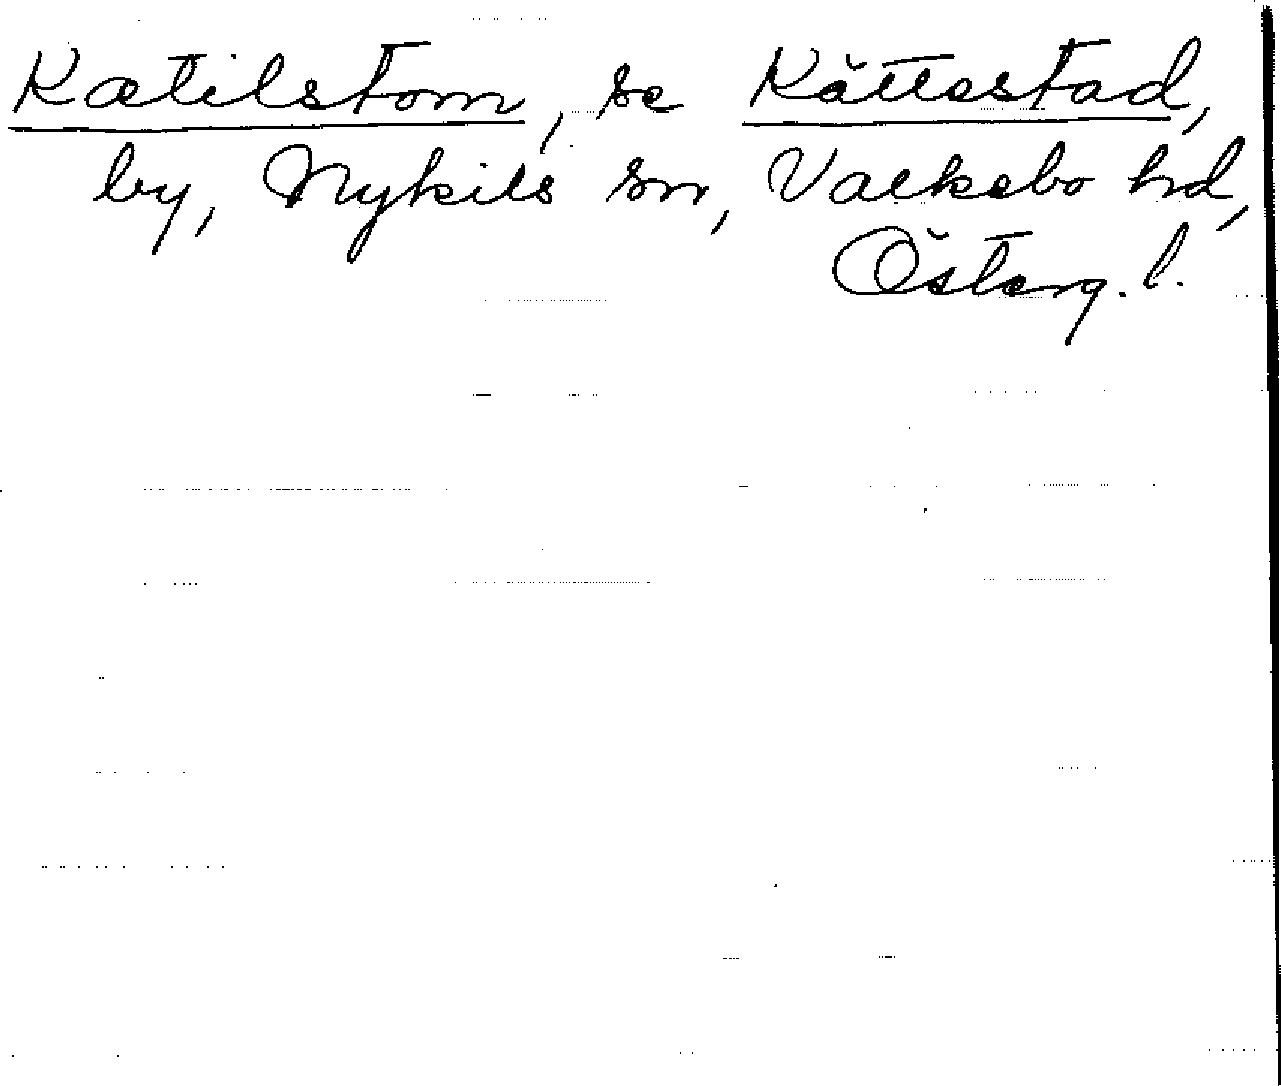 Kætilstom, se Kättestad,
by, Nykils sn, Valkebo hd,
Österg. l.